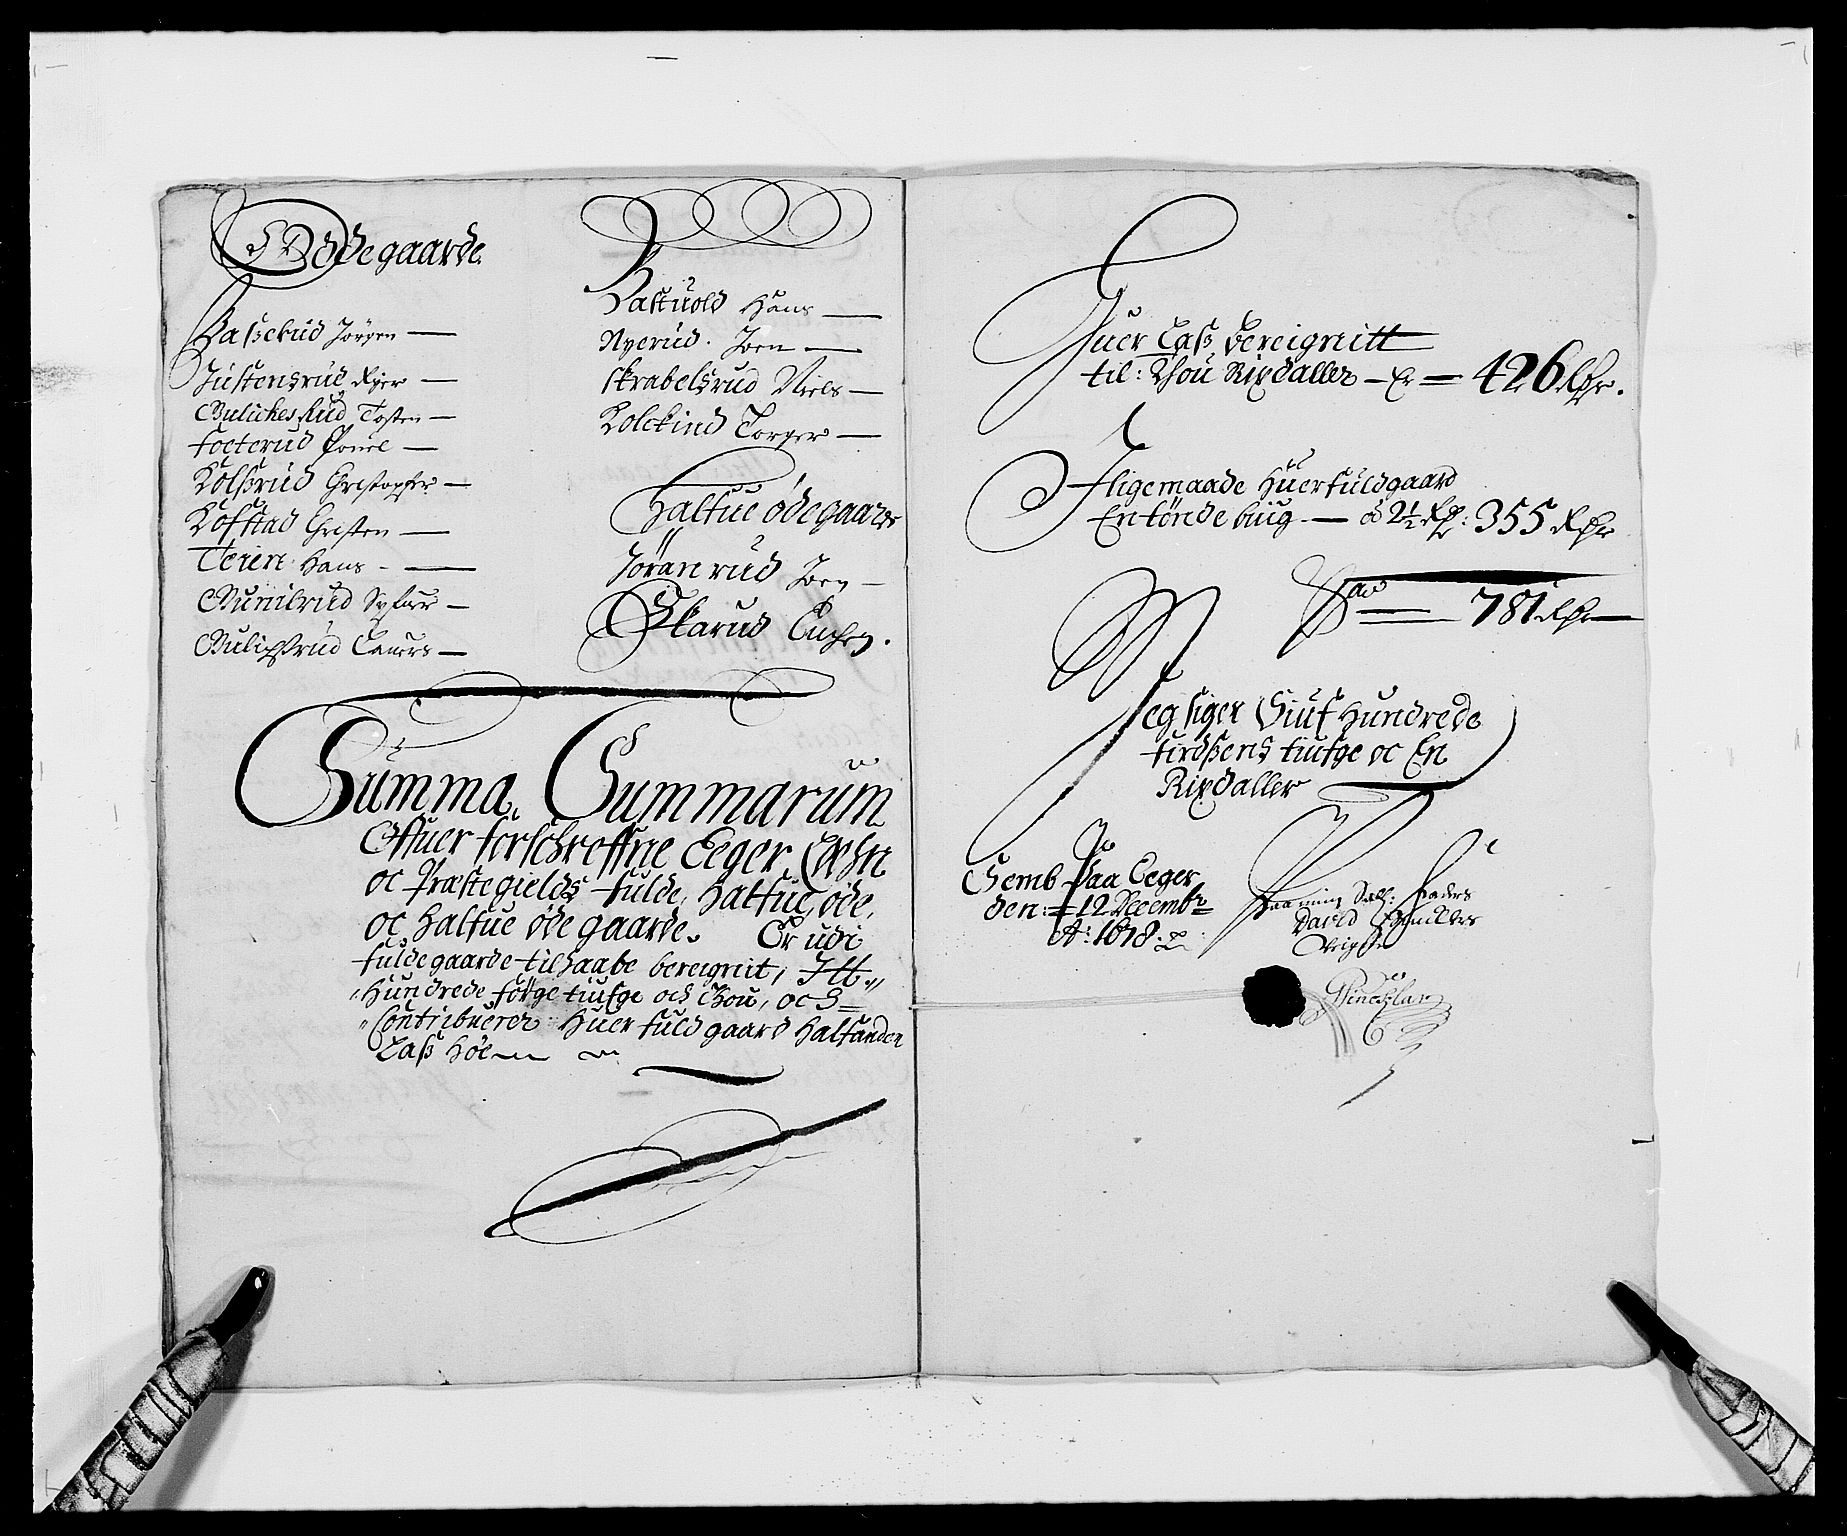 Ødegaarde
Baßerud Jörgen —
Justensrud Ajer —
Gulichesrud Tosten —
foeterud Pouel —
Kolßrud Christopher —
Kofstad Christen —
Teien Hans —
Gunilrud Syfuer —
Gulichßrud Lauers —
Bastuold Hans —
Nyerud. Joen —
skrabelsrud Niels —
Kolckind Torger —
Halfue ødegaarde
Jöranrud Joen —
Skarud
Summa Summarum
Offuer forschreffne Eeger Lehn
oc Præstegields fulde, halfue, øde,
oc halfue øde gaarde. Er udi
fuldegaarde tilhaabe bereignit, Itt
Hundrede förge tiufge och Thou, och
Contribuerer Huer fuld gaard halfanden
Laß höe
Huer Laß bereignitt
til: Thou Rixdaller — Er — 426 Rdr.
Iligemaade Huer fuldgaard
En tönde biug — à 2½ Rdr: 355 Rdr
781 Rdr
Jeg siger Siuf Hundrede
firdßens tiufge oc En
Rixdaller
Semb Paa Eeger
den: 12 Decemb:
Ao: 1678.
Sall: Faders
David